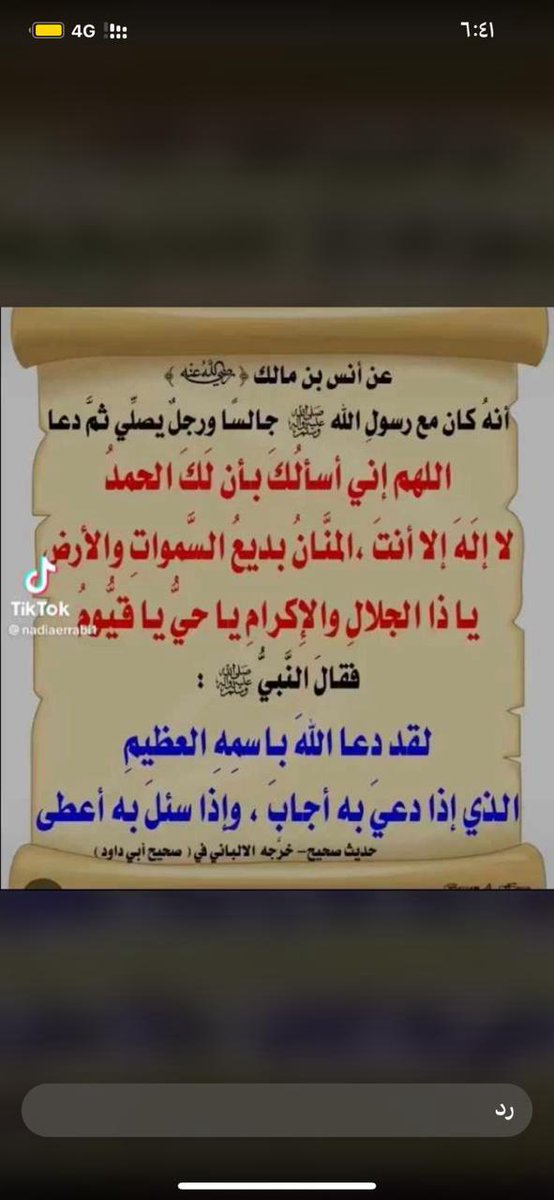 4G
٦:٤١
عن أنس بن مالك ﴿رضي الله عنه﴾
أنهُ كان مع رسولِ الله ﷺ جالسًا ورجلٌ يصلِّي ثمَّ دعا
اللهم إني أسألُكَ بأن لَكَ الحمدُ
لا إلَهَ إلا أنتَ ،المنَّانُ بديعُ السَّمواتِ والأرضِ
يا ذا الجلالِ والإكرامِ يا حيُّ يا قيُّومُ
TikTok
@nadiaerrabi1
فقالَ النَّبيُّ ﷺ :
لقد دعا اللهَ باسمِهِ العظيمِ
الذي إذا دعيَ به أجابَ ، وإذا سئلَ به أعطى
حديث صحيح- خرَّجه الالباني في ( صحيح أبي داود )
رد